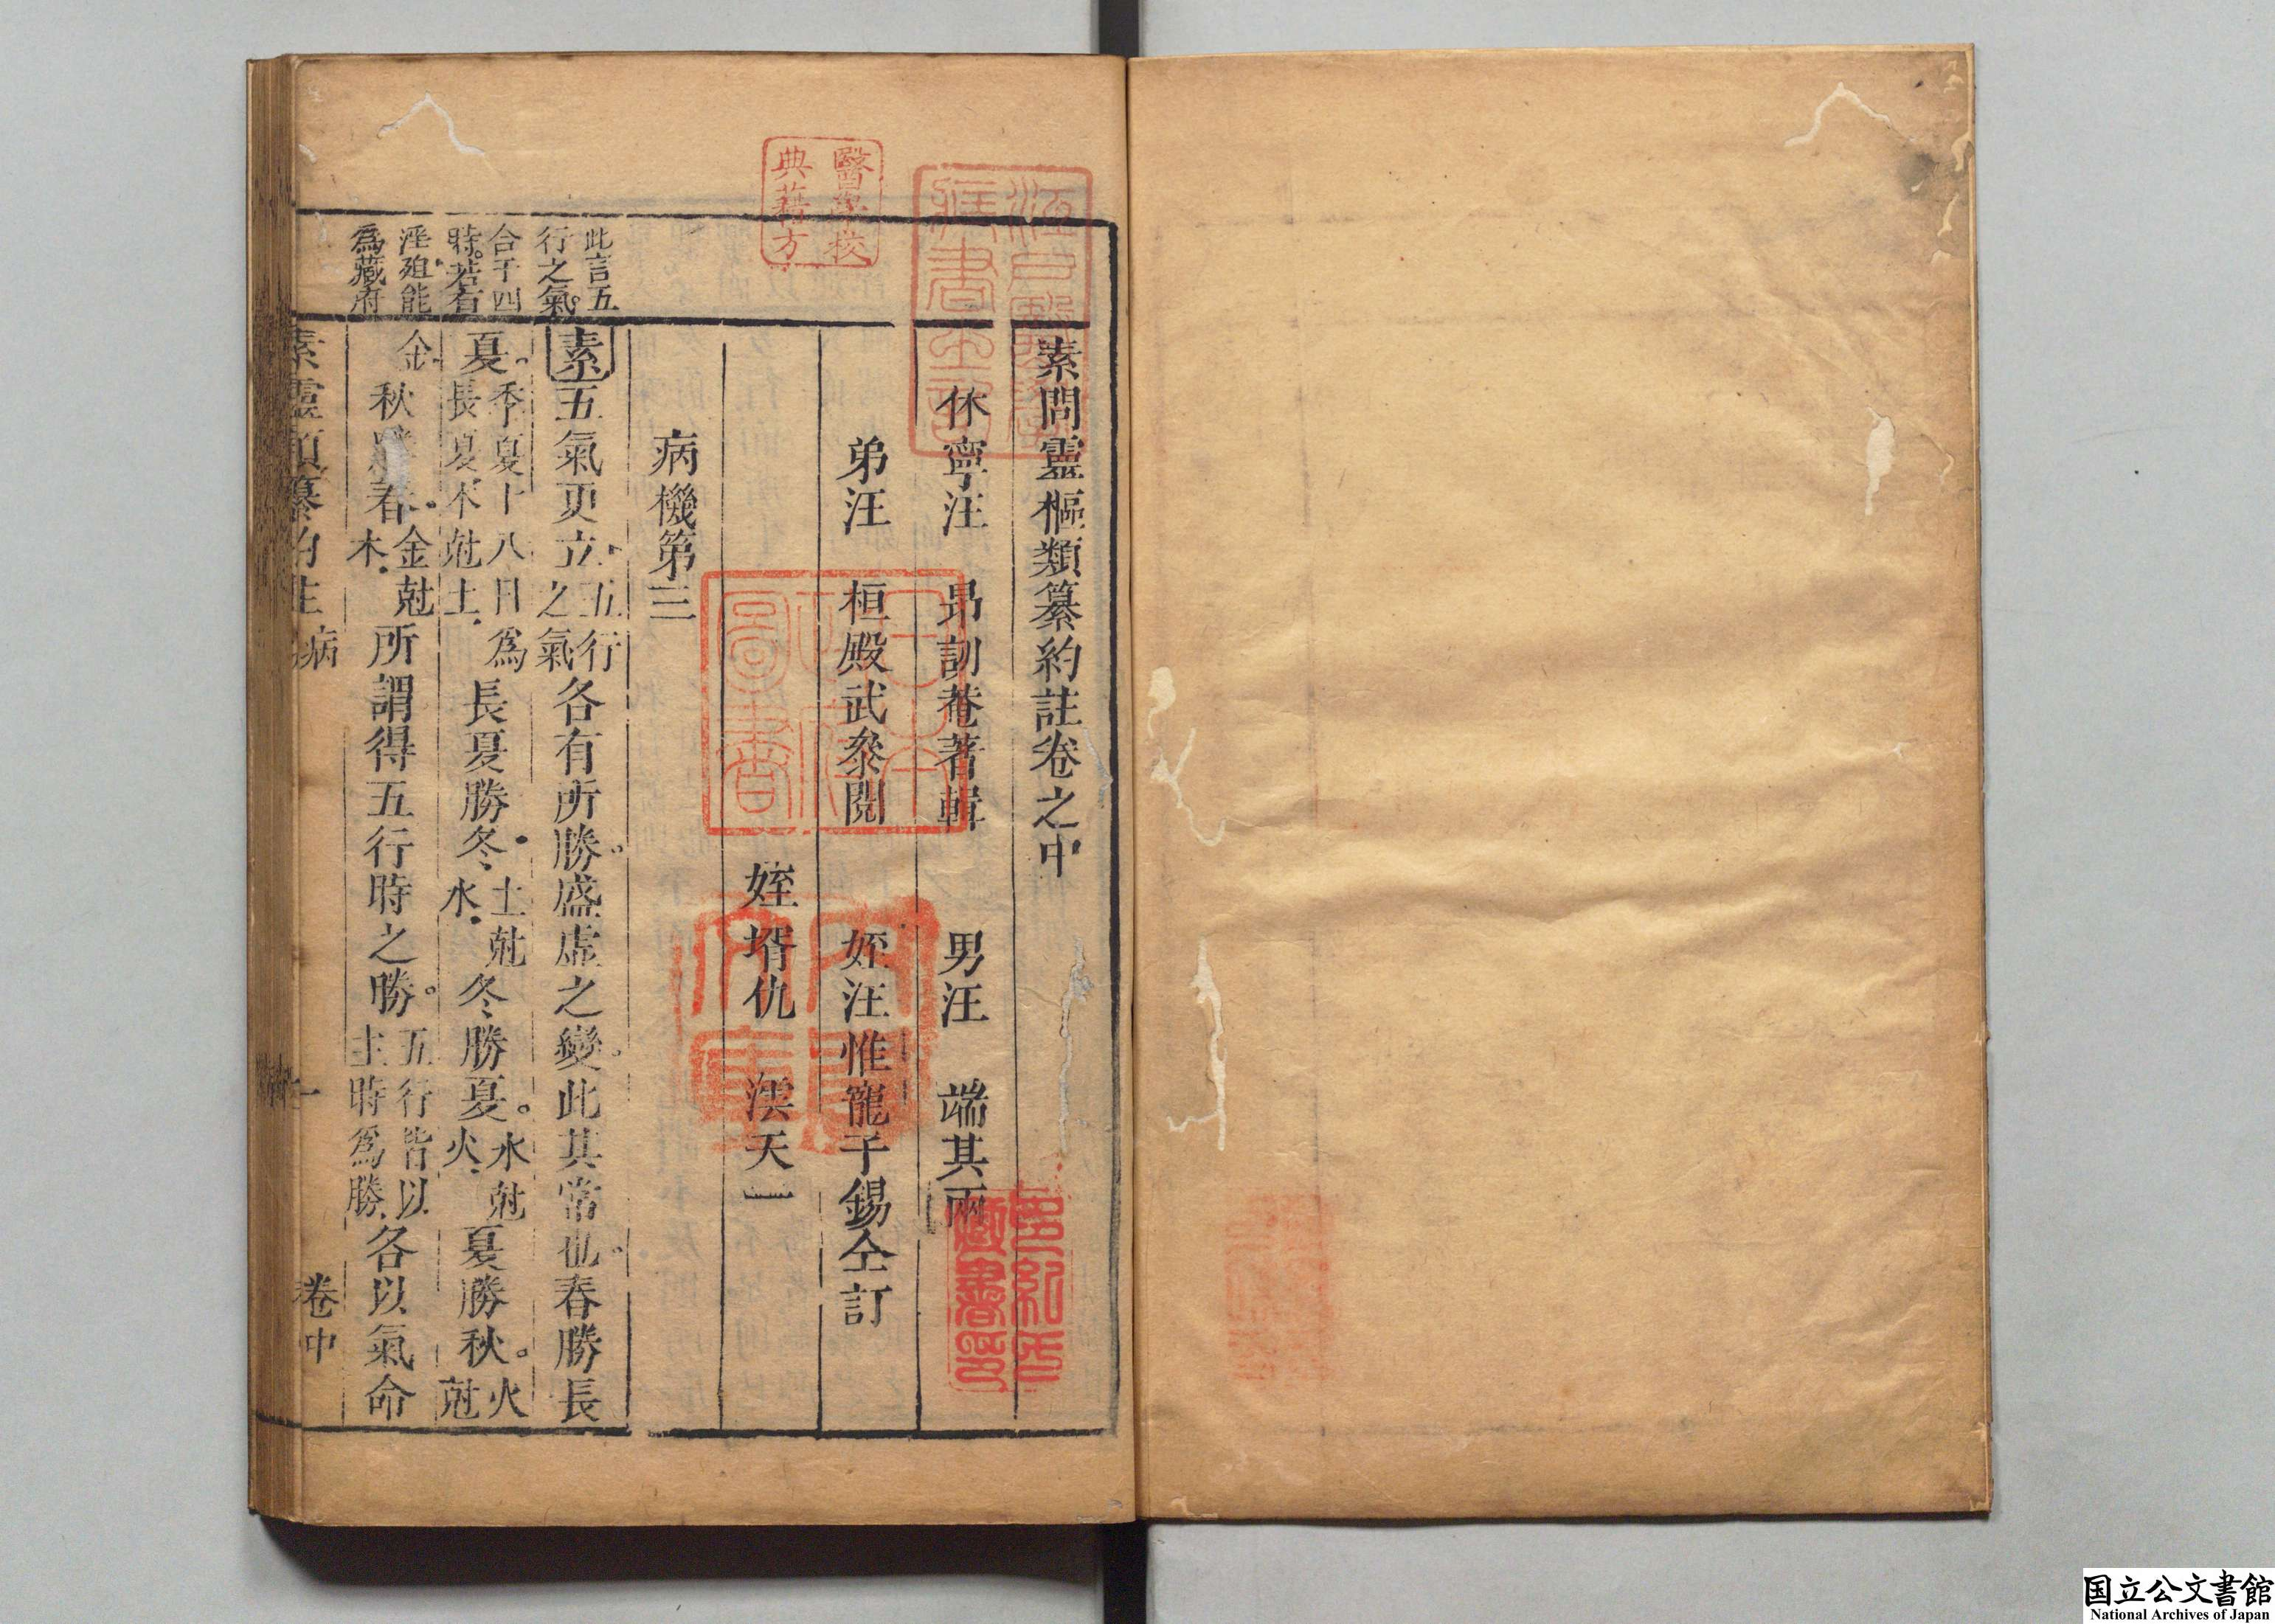 素問靈樞類纂約註卷之中
休寧汪　昻訒菴著輯　男汪　端其兩
弟汪　桓殿武叅閱　姪汪惟寵子錫仝訂
姪壻仇　澐天一
病機第三
此言五
行之氣
合于四
時若有
淫殂能
爲藏府
素五氣更立五行之氣各有所勝盛虛之變此其常也春勝長
夏季夏十八日爲長夏木尅土長夏勝冬土尅水冬勝夏水尅火夏勝秋火尅
金秋勝春金尅木所謂得五行時之勝五行皆以主時爲勝各以氣命
素靈類纂約註　病　一　卷中
醫學校
典藉方
江戸醫學
藏書之記
圖書
多紀氏
藏書印
国立公文書館
National Archives of Japan